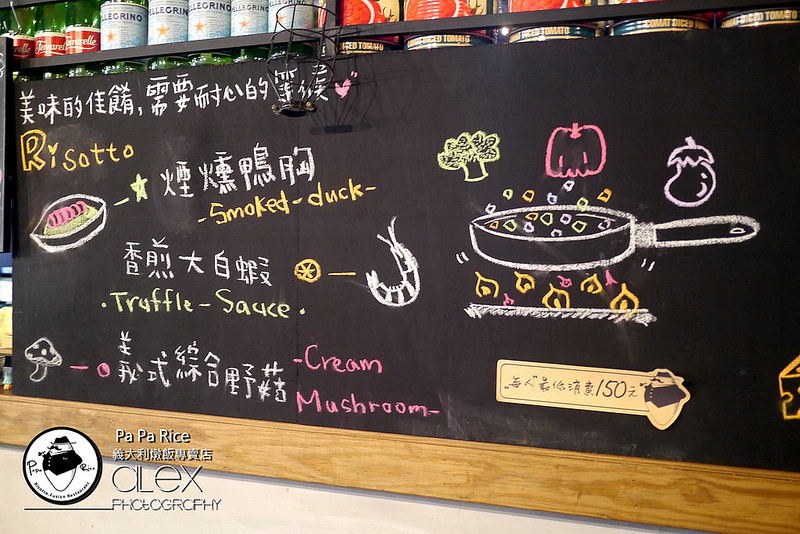 SPELLEGRINO
COMAT DICED TOMATO
美味的佳餚,需要耐心的等候
Risotto
煙燻鴨胸
-Smoked-duck-
香煎大白蝦
·Truffle-Sauce·
義式綜合野菇
-Cream
Mushroom-
每人最低消費150元
Pa Pa Rice
義大利燉飯專賣店
alex
PHOTOGRAPHY